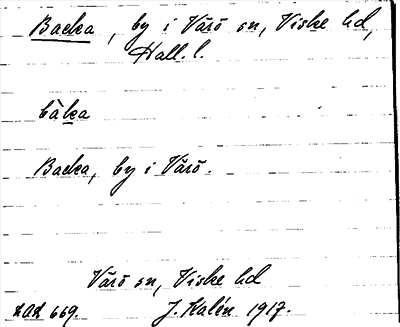 Backa, by i Värö sn, Viske hd,
Hall. l.
bàka
Backa, by i Värö.
Värö sn, Viske hd
J. Kalén 1917.
669.